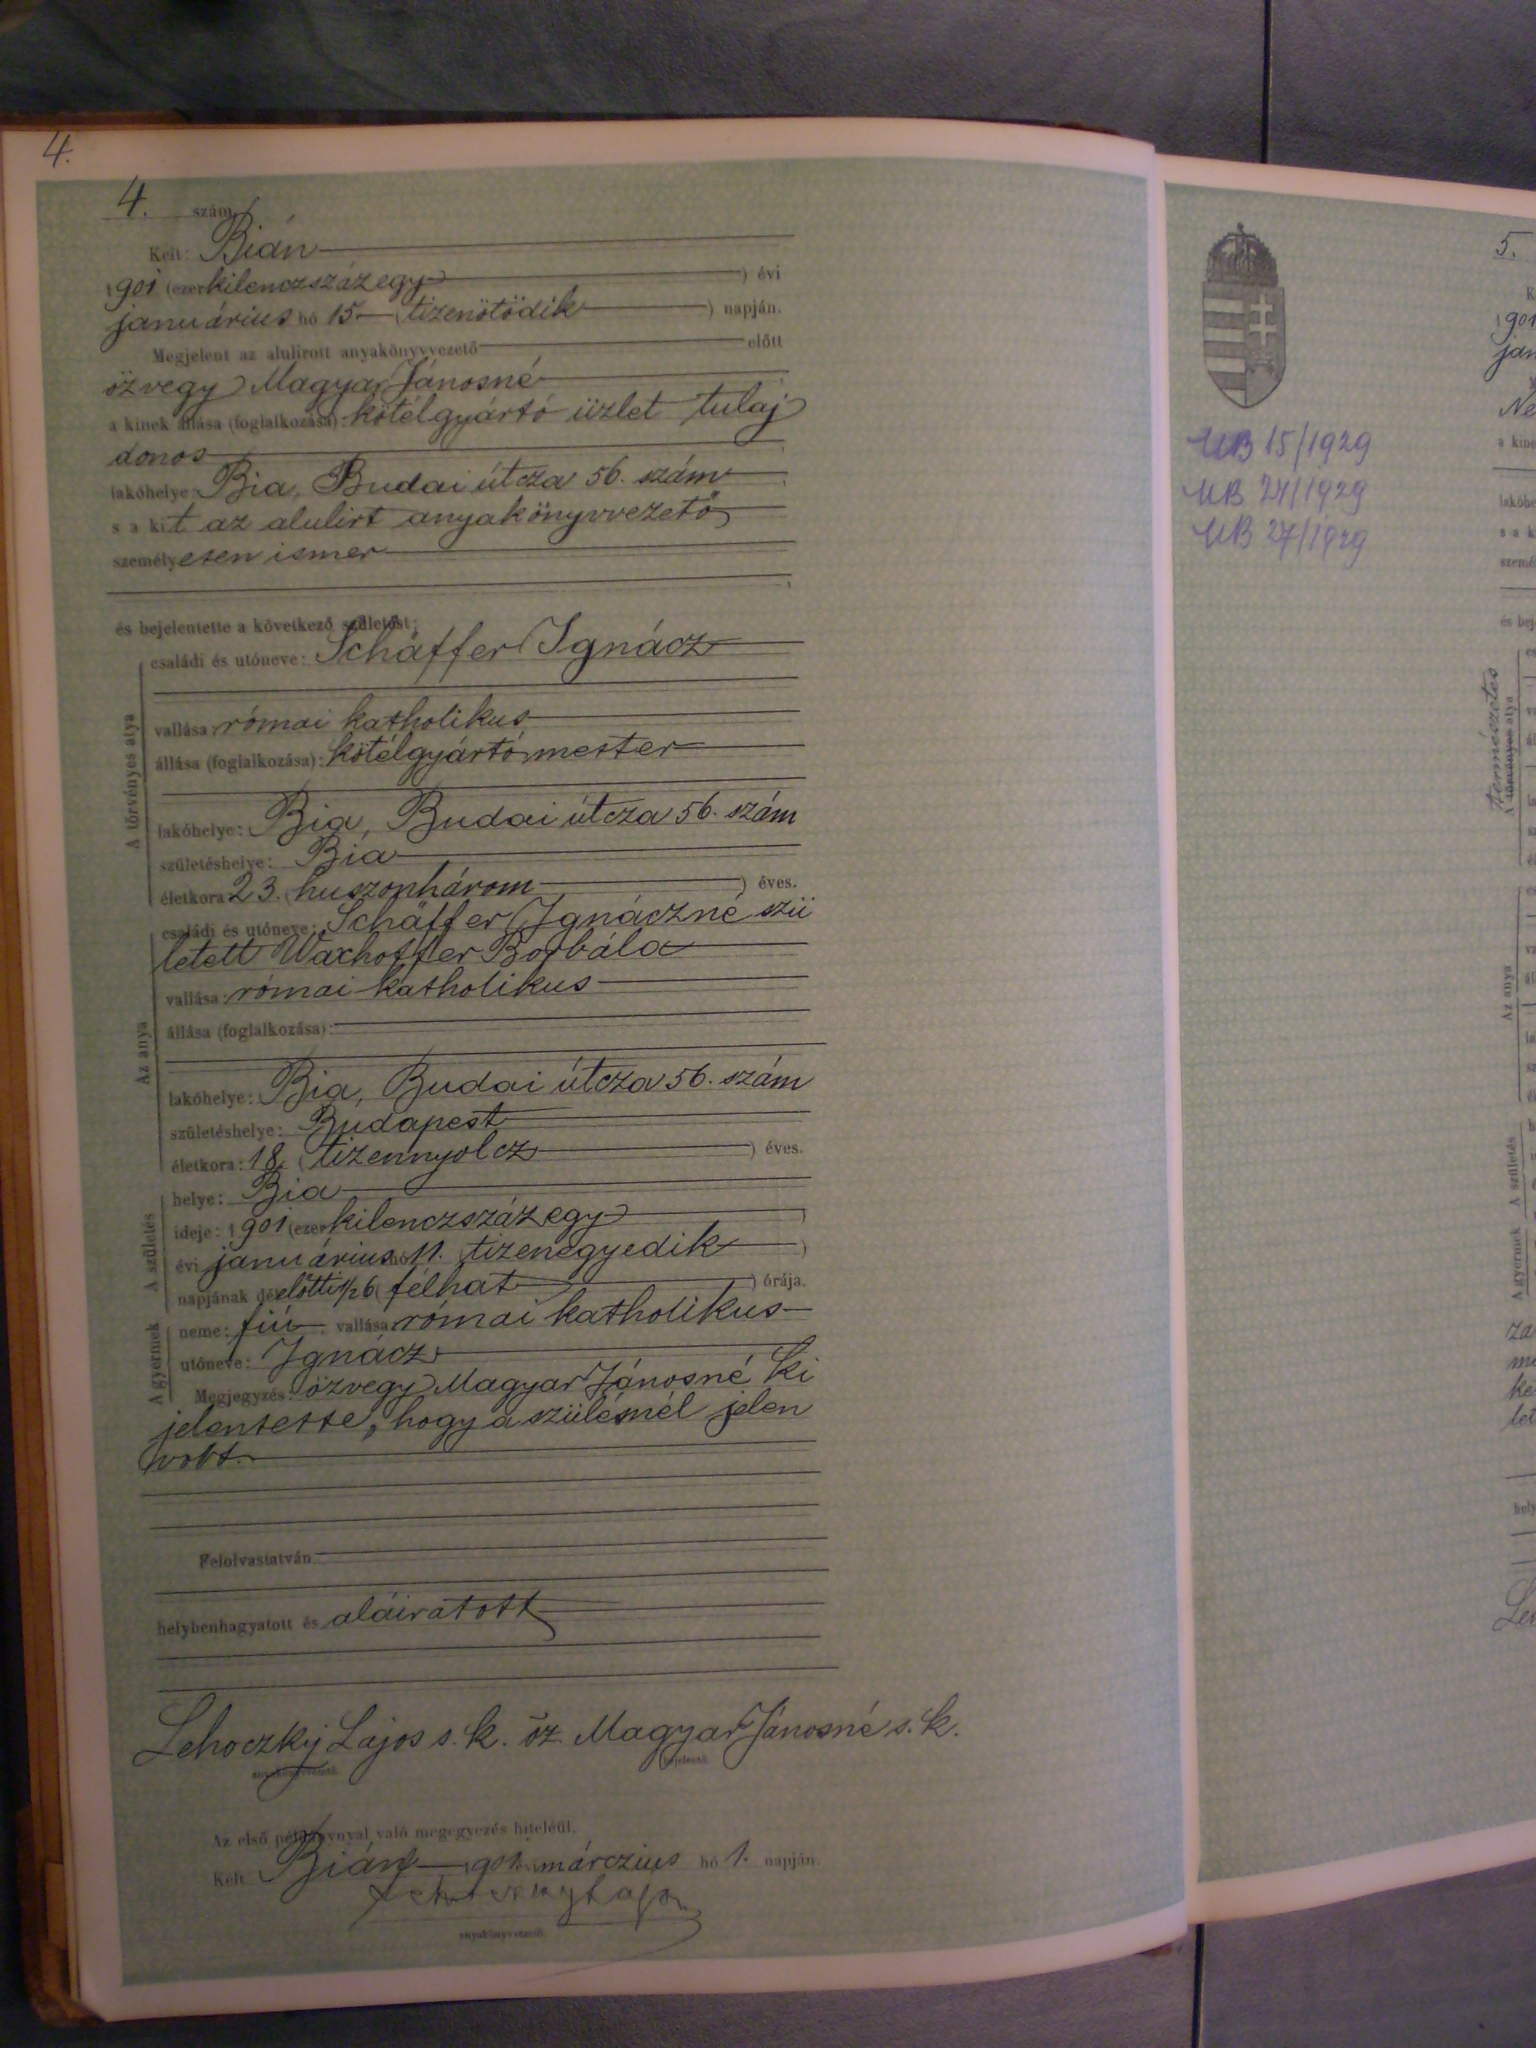 4.
4. szám.
Kelt: Bián
1901 (ezerkilenczszázegy) évi
januárius hó 15 (tizenötödik) napján.
Megjelent az alulirott anyakönyvvezető előtt
özvegy Magyar Jánosné
a kinek állása (foglalkozása): kötélgyártó üzlet tulaj
donos
lakóhelye: Bia, Budai útcza 56. szám
s a kit az alulirt anyakönyvvezető
személyesen ismer
és bejelentette a következő születést:
A törvényes atya
családi és utóneve: Schäffer Ignácz
vallása: római katholikus
állása (foglalkozása): kötélgyártó mester
lakóhelye: Bia, Budai útcza 56. szám
születéshelye: Bia
életkora: 23. (huszonhárom) éves.
Az anya
családi és utóneve: Schäffer Ignáczné szü
letett Waxhoffer Borbála
vallása: római katholikus
állása (foglalkozása):
lakóhelye: Bia, Budai útcza 56. szám
születéshelye: Budapest
életkora: 18. (tizennyolcz) éves.
A születés
helye: Bia
ideje: 1901 (ezerkilenczszázegy)
évi januárius hó 11. (tizenegyedik)
napjának délelőtti 1/2 6 (félhat) órája.
A gyermek
neme: fiú vallása: római katholikus
utóneve: Ignácz
Megjegyzés: özvegy Magyar Jánosné ki
jelentette, hogy a szülésnél jelen
volt.
Felolvastatván
helybenhagyatott és aláiratott
Lehoczky Lajos s. k. öz. Magyar Jánosné s. k.
anyakönyvvezető. bejelentő.
Az első példánynyal való megegyezés hiteléül.
Kelt Bián 1901. évi márczius hó 1. napján.
anyakönyvvezető.
UB 15/1929
UB 24/1929
UB 27/1929
5.
1901
jan
természetes
A törvényes atya
Az anya
A születés
A gyermek